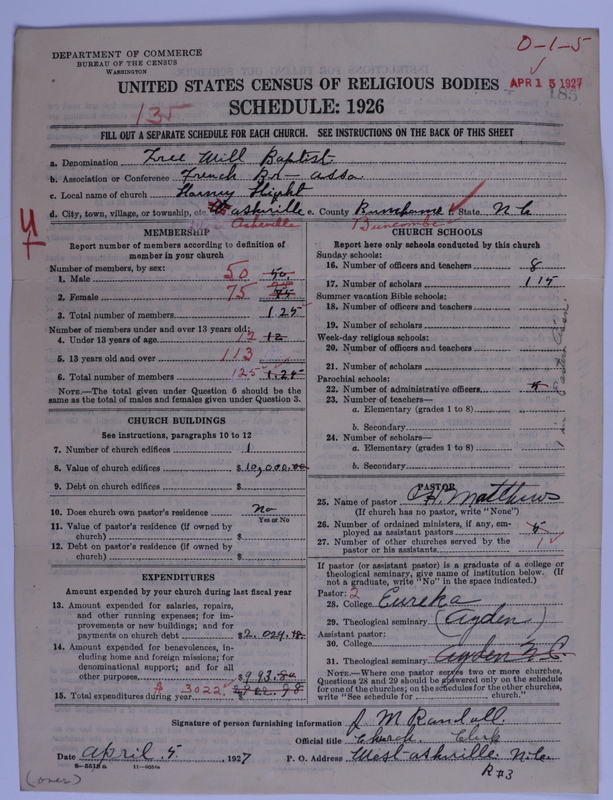 DEPARTMENT OF COMMERCE
BUREAU OF THE CENSUS
WASHINGTON
0-1-5
APR 15 1927
185
UNITED STATES CENSUS OF RELIGIOUS BODIES
135
SCHEDULE: 1926
FILL OUT A SEPARATE SCHEDULE FOR EACH CHURCH. SEE INSTRUCTIONS ON THE BACK OF THIS SHEET
a. Denomination Free Will Baptist
b. Association or Conference French Br - assa
c. Local name of church
d. City, town, village, or township, etc. W ashville e. County Buncombe f. State N C
Asheville Buncombe
MEMBERSHIP
Report number of members according to definition of member in your church
Number of members, by sex:
1. Male 50 50
2. Female 75 75
3. Total number of members 125
Number of members under and over 13 years old:
4. Under 13 years of age 12 12
5. 13 years old and over 113
6. Total number of members 125 125
NOTE.—The total given under Question 6 should be the same as the total of males and females given under Question 3.
CHURCH BUILDINGS
See instructions, paragraphs 10 to 12
7. Number of church edifices 1
8. Value of church edifices $10,000.00
9. Debt on church edifices $
10. Does church own pastor's residence No
Yes or No
11. Value of pastor's residence (if owned by church) $
12. Debt on pastor's residence (if owned by church) $
EXPENDITURES
Amount expended by your church during last fiscal year
13. Amount expended for salaries, repairs, and other running expenses; for improvements or new buildings; and for payments on church debt $2,029.18
14. Amount expended for benevolences, including home and foreign missions; for denominational support; and for all other purposes $993.80
15. Total expenditures during year $ 3022
CHURCH SCHOOLS
Report here only schools conducted by this church
Sunday schools:
16. Number of officers and teachers 8
17. Number of scholars 115
Summer vacation Bible schools:
18. Number of officers and teachers
19. Number of scholars
Week-day religious schools:
20. Number of officers and teachers
21. Number of scholars
Parochial schools:
22. Number of administrative officers
23. Number of teachers—
a. Elementary (grades 1 to 8)
b. Secondary
24. Number of scholars—
a. Elementary (grades 1 to 8)
b. Secondary
PASTOR
25. Name of pastor H. Matthews
(If church has no pastor, write "None")
26. Number of ordained ministers, if any, employed as assistant pastors
27. Number of other churches served by the pastor or his assistants 1
If pastor (or assistant pastor) is a graduate of a college or theological seminary, give name of institution below. (If not a graduate, write "No" in the space indicated.)
Pastor: 2
28. College Eureka
29. Theological seminary (Ayden)
Assistant pastor:
30. College
31. Theological seminary Ayden N C
NOTE.—Where one pastor serves two or more churches, Questions 28 and 29 should be answered only on the schedule for one of the churches; on the schedules for the other churches, write "See schedule for church."
Signature of person furnishing information J. M Randall
Official title Church Clerk
Date April 5 1927 P. O. Address West ashville N.C.
R #3
8-5518a 11-9551a
(over)